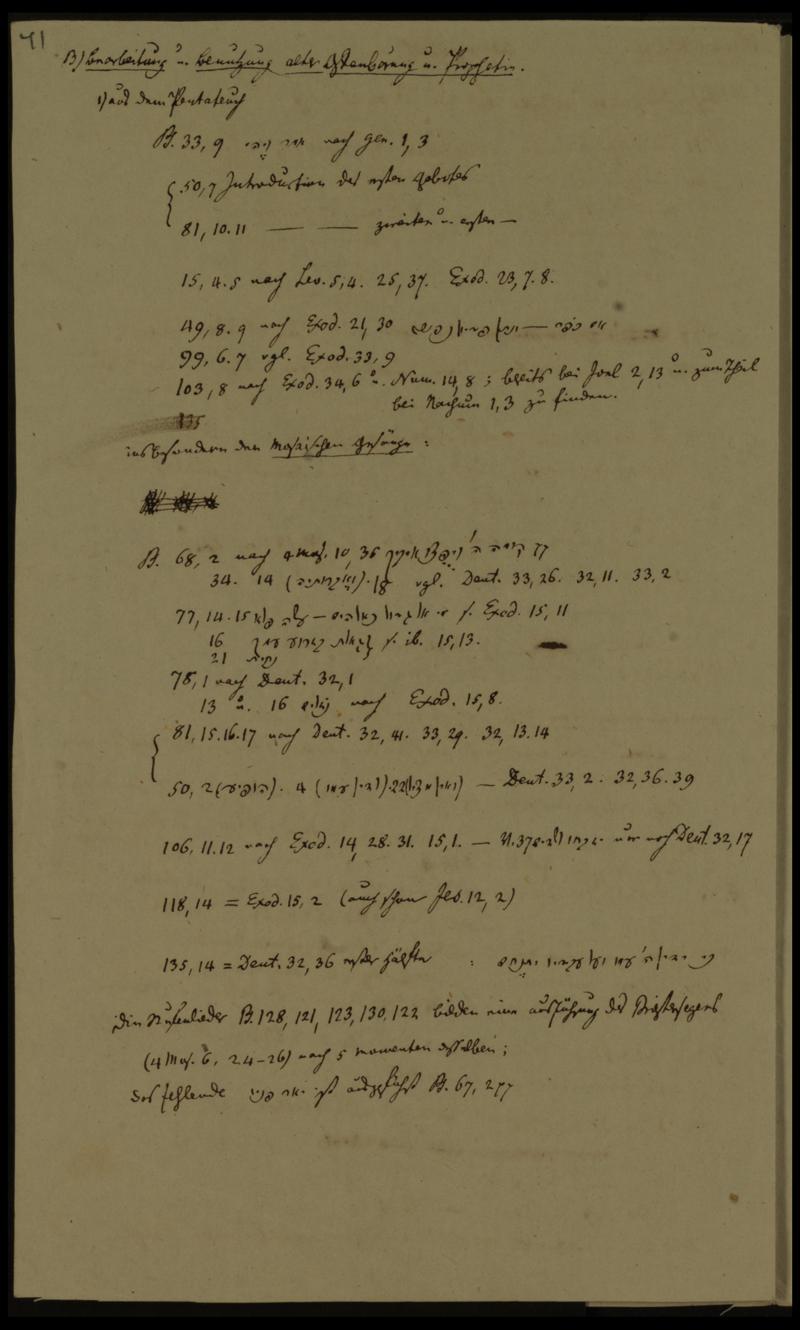 41
B) Bearbeitung u. Benutzung alter Offenbarung u. Prophetie.
1) aus dem Pentateuch
Ps. 33, 9 אמר ויהי nach Gen. 1, 3
50, 7 Introduction des ersten Gebotes
81, 10. 11 — — zweiten u. ersten —
15, 4. 5 nach Lev. 5, 4. 25, 37. Exod. 23, 7. 8.
49, 8. 9 nach Exod. 21, 30
99, 6. 7 vgl. Exod. 33, 9
103, 8 nach Exod. 34, 6 u. Num. 14, 8; bereits bei Joel 2, 13 u. zum Theil
bei Nachum 1, 3 zu finden.
135
insbesondere den Mosaischen Gesänge:
Ps. 68, 2 nach 4 Mos. 10, 35
34. 14 vgl. Deut. 33, 26. 32, 11. 33, 2
77, 14. 15 מי אל גדול כאלהים — עשה פלא f. Exod. 15, 11
16 גאלת בזרוע עמך f. ib. 15, 13.
21 נחית
78, 1 nach Deut. 32, 1
13 u. 16 nach Exod. 15, 8.
81, 15. 16. 17 nach Deut. 32, 41. 33, 29. 32, 13. 14
50, 2 (הופיע). 4 (לדין עמו). 22 (ואין מציל) — Deut. 33, 2. 32, 36. 39
106, 11. 12 nach Exod. 14, 28. 31. 15, 1. — V. 37 nur noch Deut. 32, 17
118, 14 = Exod. 15, 2 (auch schon Jes. 12, 2)
135, 14 = Deut. 32, 36 erster Hälfte : כי ידין ה' עמו ועל עבדיו יתנחם
Die Stufenlieder Ps. 128, 121, 123, 130, 122 bilden eine Ausführung des Priestersegens
(4 Mos. 6, 24–26) nach 5 Momenten desselben;
das fehlende יאר פניו ist ausgeführt Ps. 67, 2